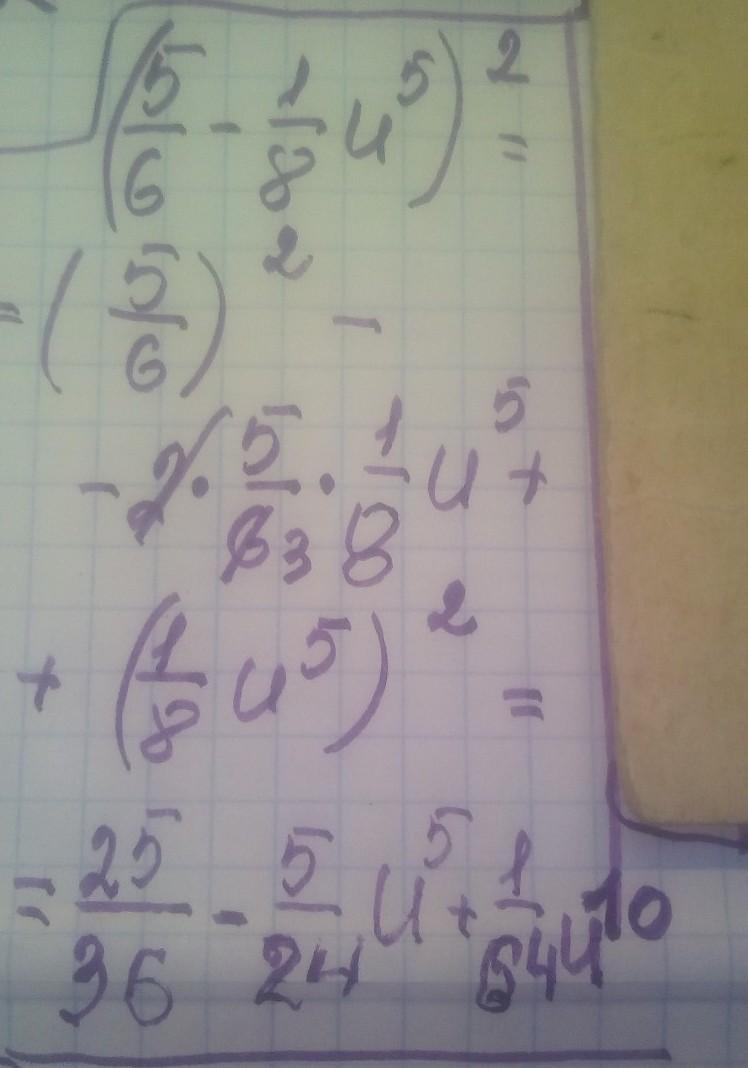 (5/6 - 1/8 u^5)^2 =
= (5/6)^2 -
- 2 · 5/6 3 · 1/8 u^5 +
+ (1/8 u^5)^2 =
= 25/36 - 5/24 u^5 + 1/64 u^10